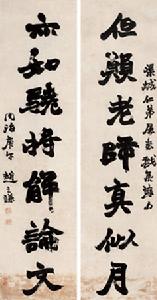 但願老師真似月
亦知驍將解論文
趙之謙